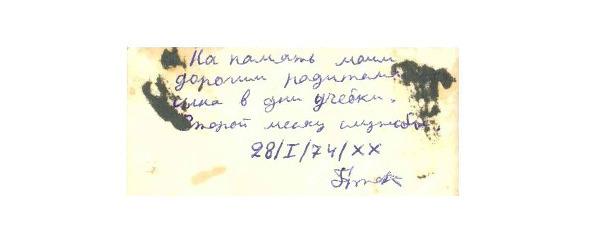 На память моим
дорогим родителям
сына в дни учебки.
Второй месяц службы.
28/I/74/XX